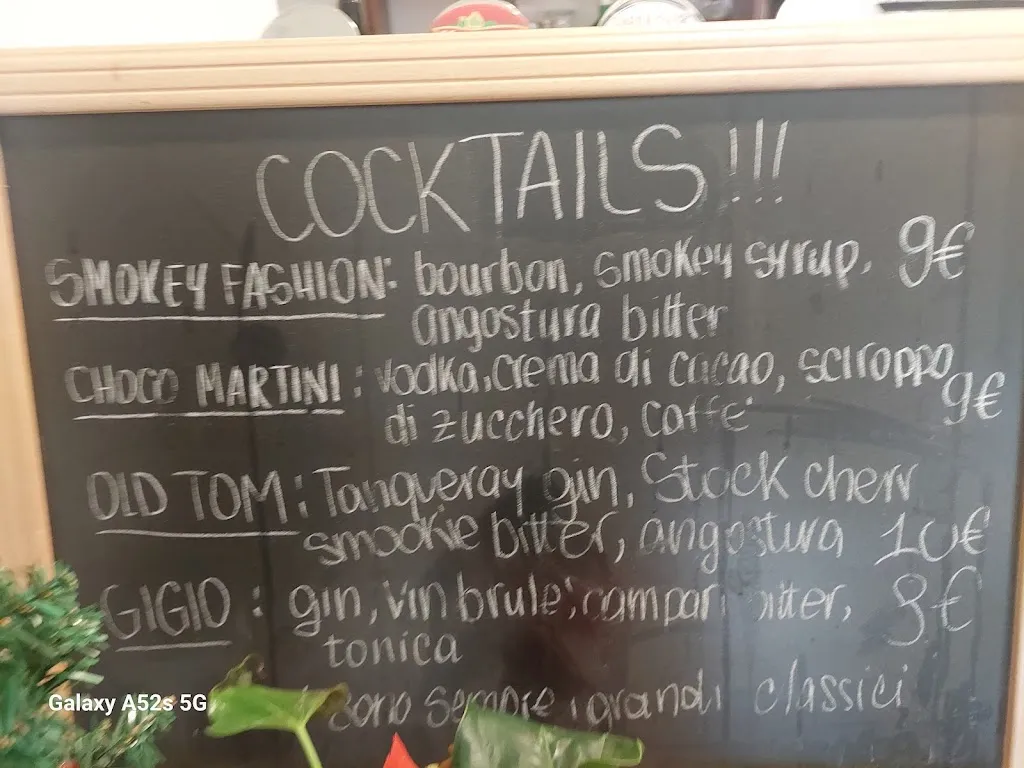 COCKTAILS!!!
SMOKEY FASHION: bourbon, smokey syrup, 9€
angostura bitter
CHOCO MARTINI: vodka, crema di cacao, sciroppo 9€
di zucchero, caffe'
OLD TOM: Tanqueray gin, Stock cherr
smookie bitter, angostura 10€
GIGIO: gin, vin brule', campari bitter, 8€
tonica
sono sempre i grandi classici
Galaxy A52s 5G